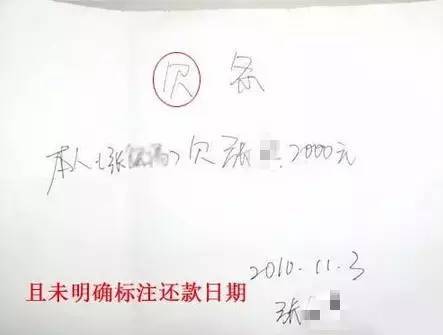 欠条
本人(张 )欠张 2000元
2010.11.3
张
且未明确标注还款日期